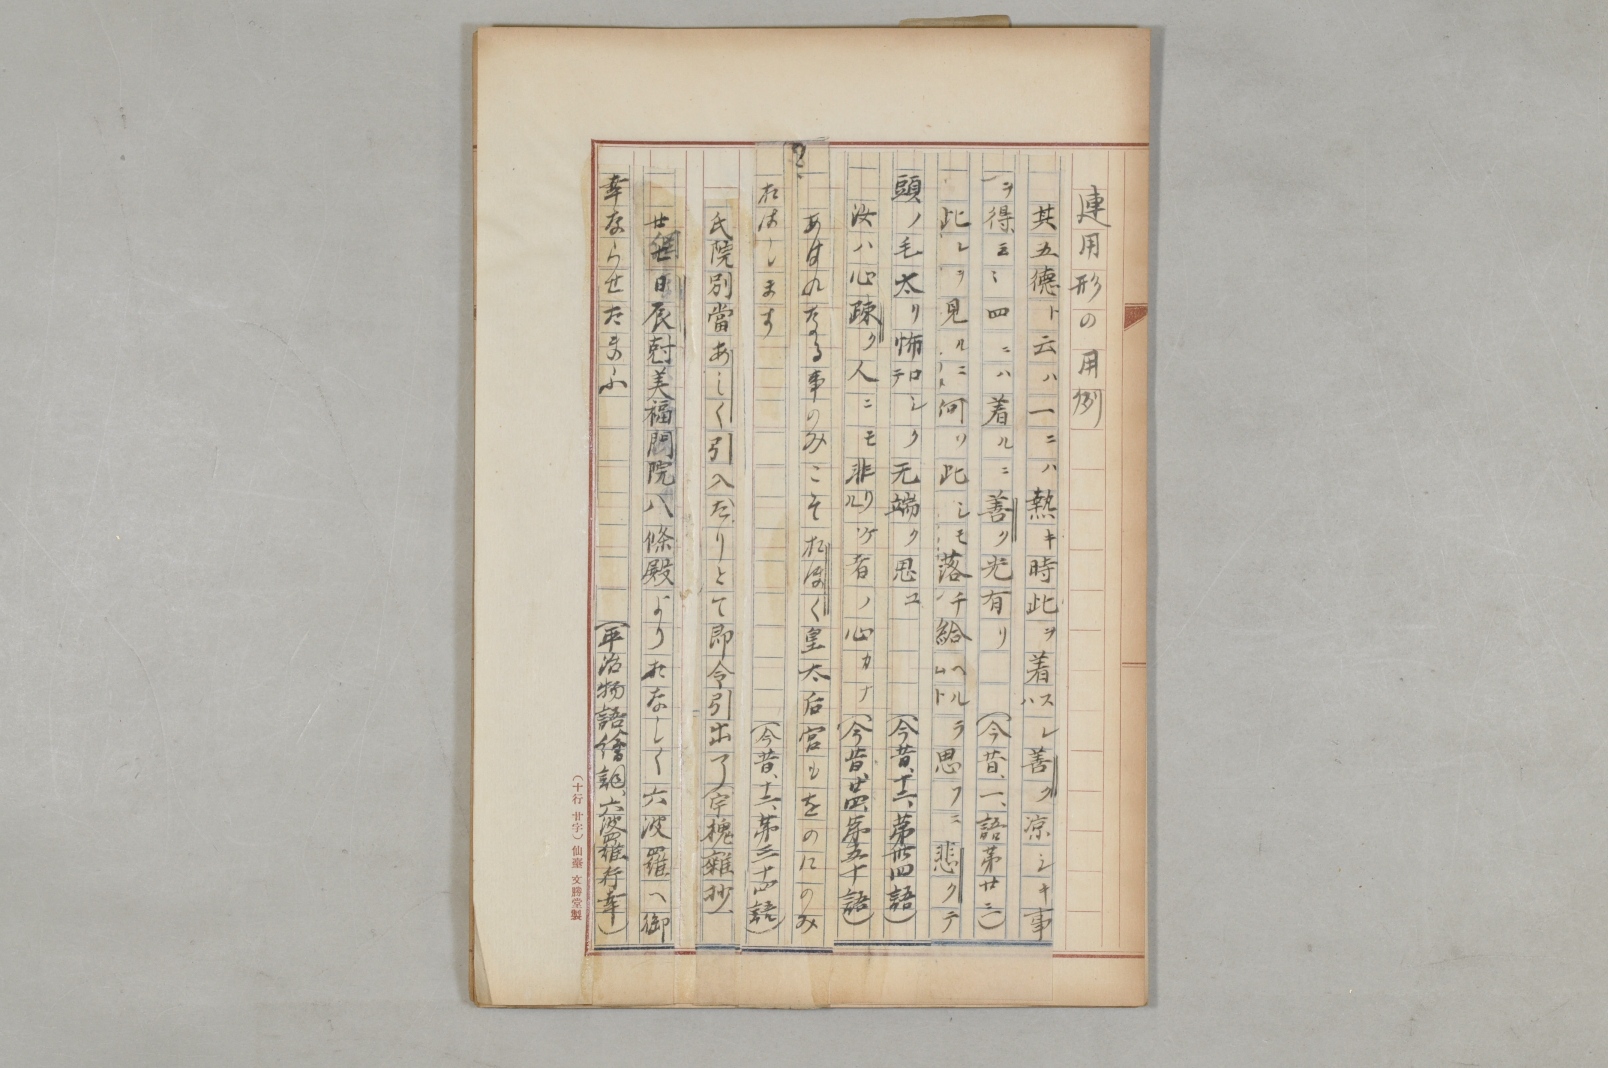 連用形の用例
其五徳ト云ハ一ニハ熱キ時此ヲ着スレハ善ク凉シキ事
ヲ得三ミ四ニハ着ルニ善ク光有リ（今昔、一、語第廿三）
此レヲ見ルニ何ソ此シモ落チ給ヘルラムト思フニ悲クテ
頭ノ毛太リ怖テロシク无端ク思ユ（今昔、十六、第廿四語）
汝ハ心疎ク人ニモ非リケル者ノ心カナ（今昔廿四、第五十語）
?
あはれなる事のみこそおほく皇太后宮もをのにのみ
おはします（今昔、十六、第三十四語）
氏院別當あしく引入たりとて即令引出了
廿 日辰尅美福門院八條殿よりおなしく六波羅へ御
幸ならせたまふ（平治物語繪詞、六波羅行幸）
（十行 廿字）仙臺 文勝堂製